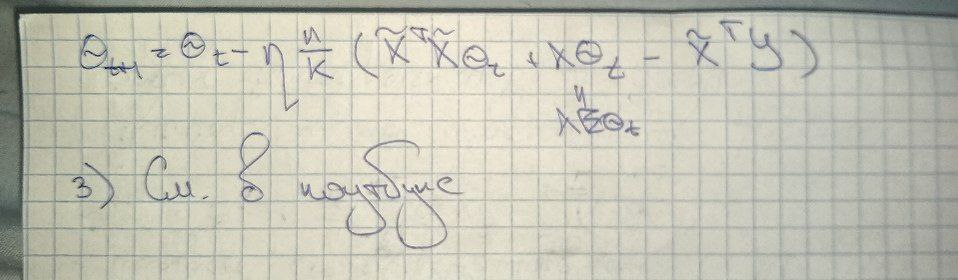 θ_{t+1} = θ_t - η n/k (X̃ᵀX̃θ_t + λθ_t - X̃ᵀy)
3) См. в ноутбуке